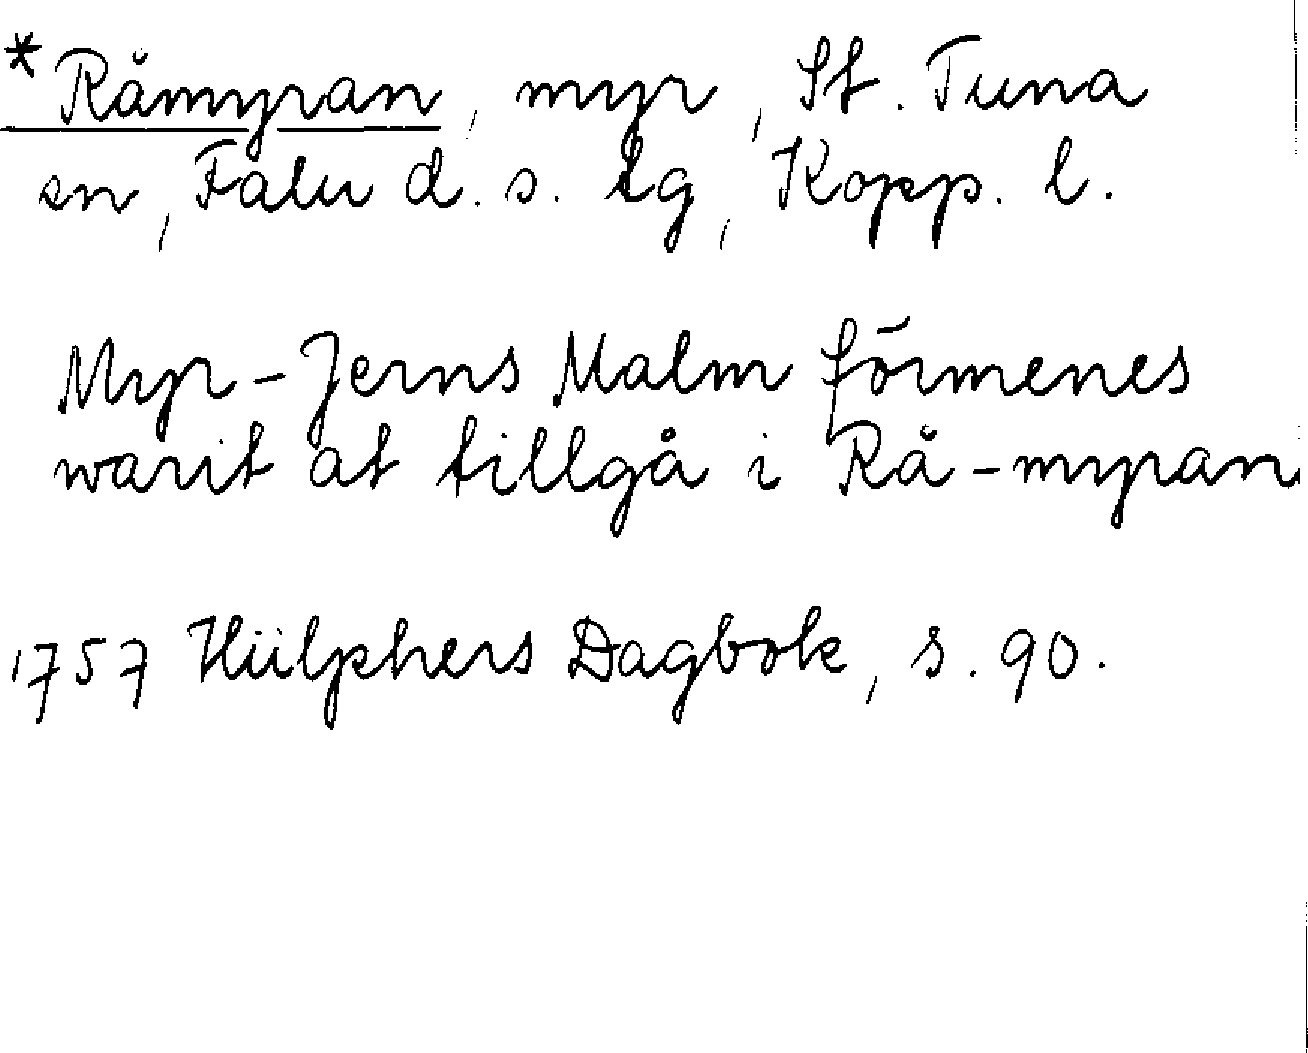 *Råmyran, myr, St. Tuna
sn, Falu d. s. lg, Kopp. l.
Myr-Jerns Malm förmenes
warit at tillgå i Rå-myran.
1757 Hülphers Dagbok, s. 90.